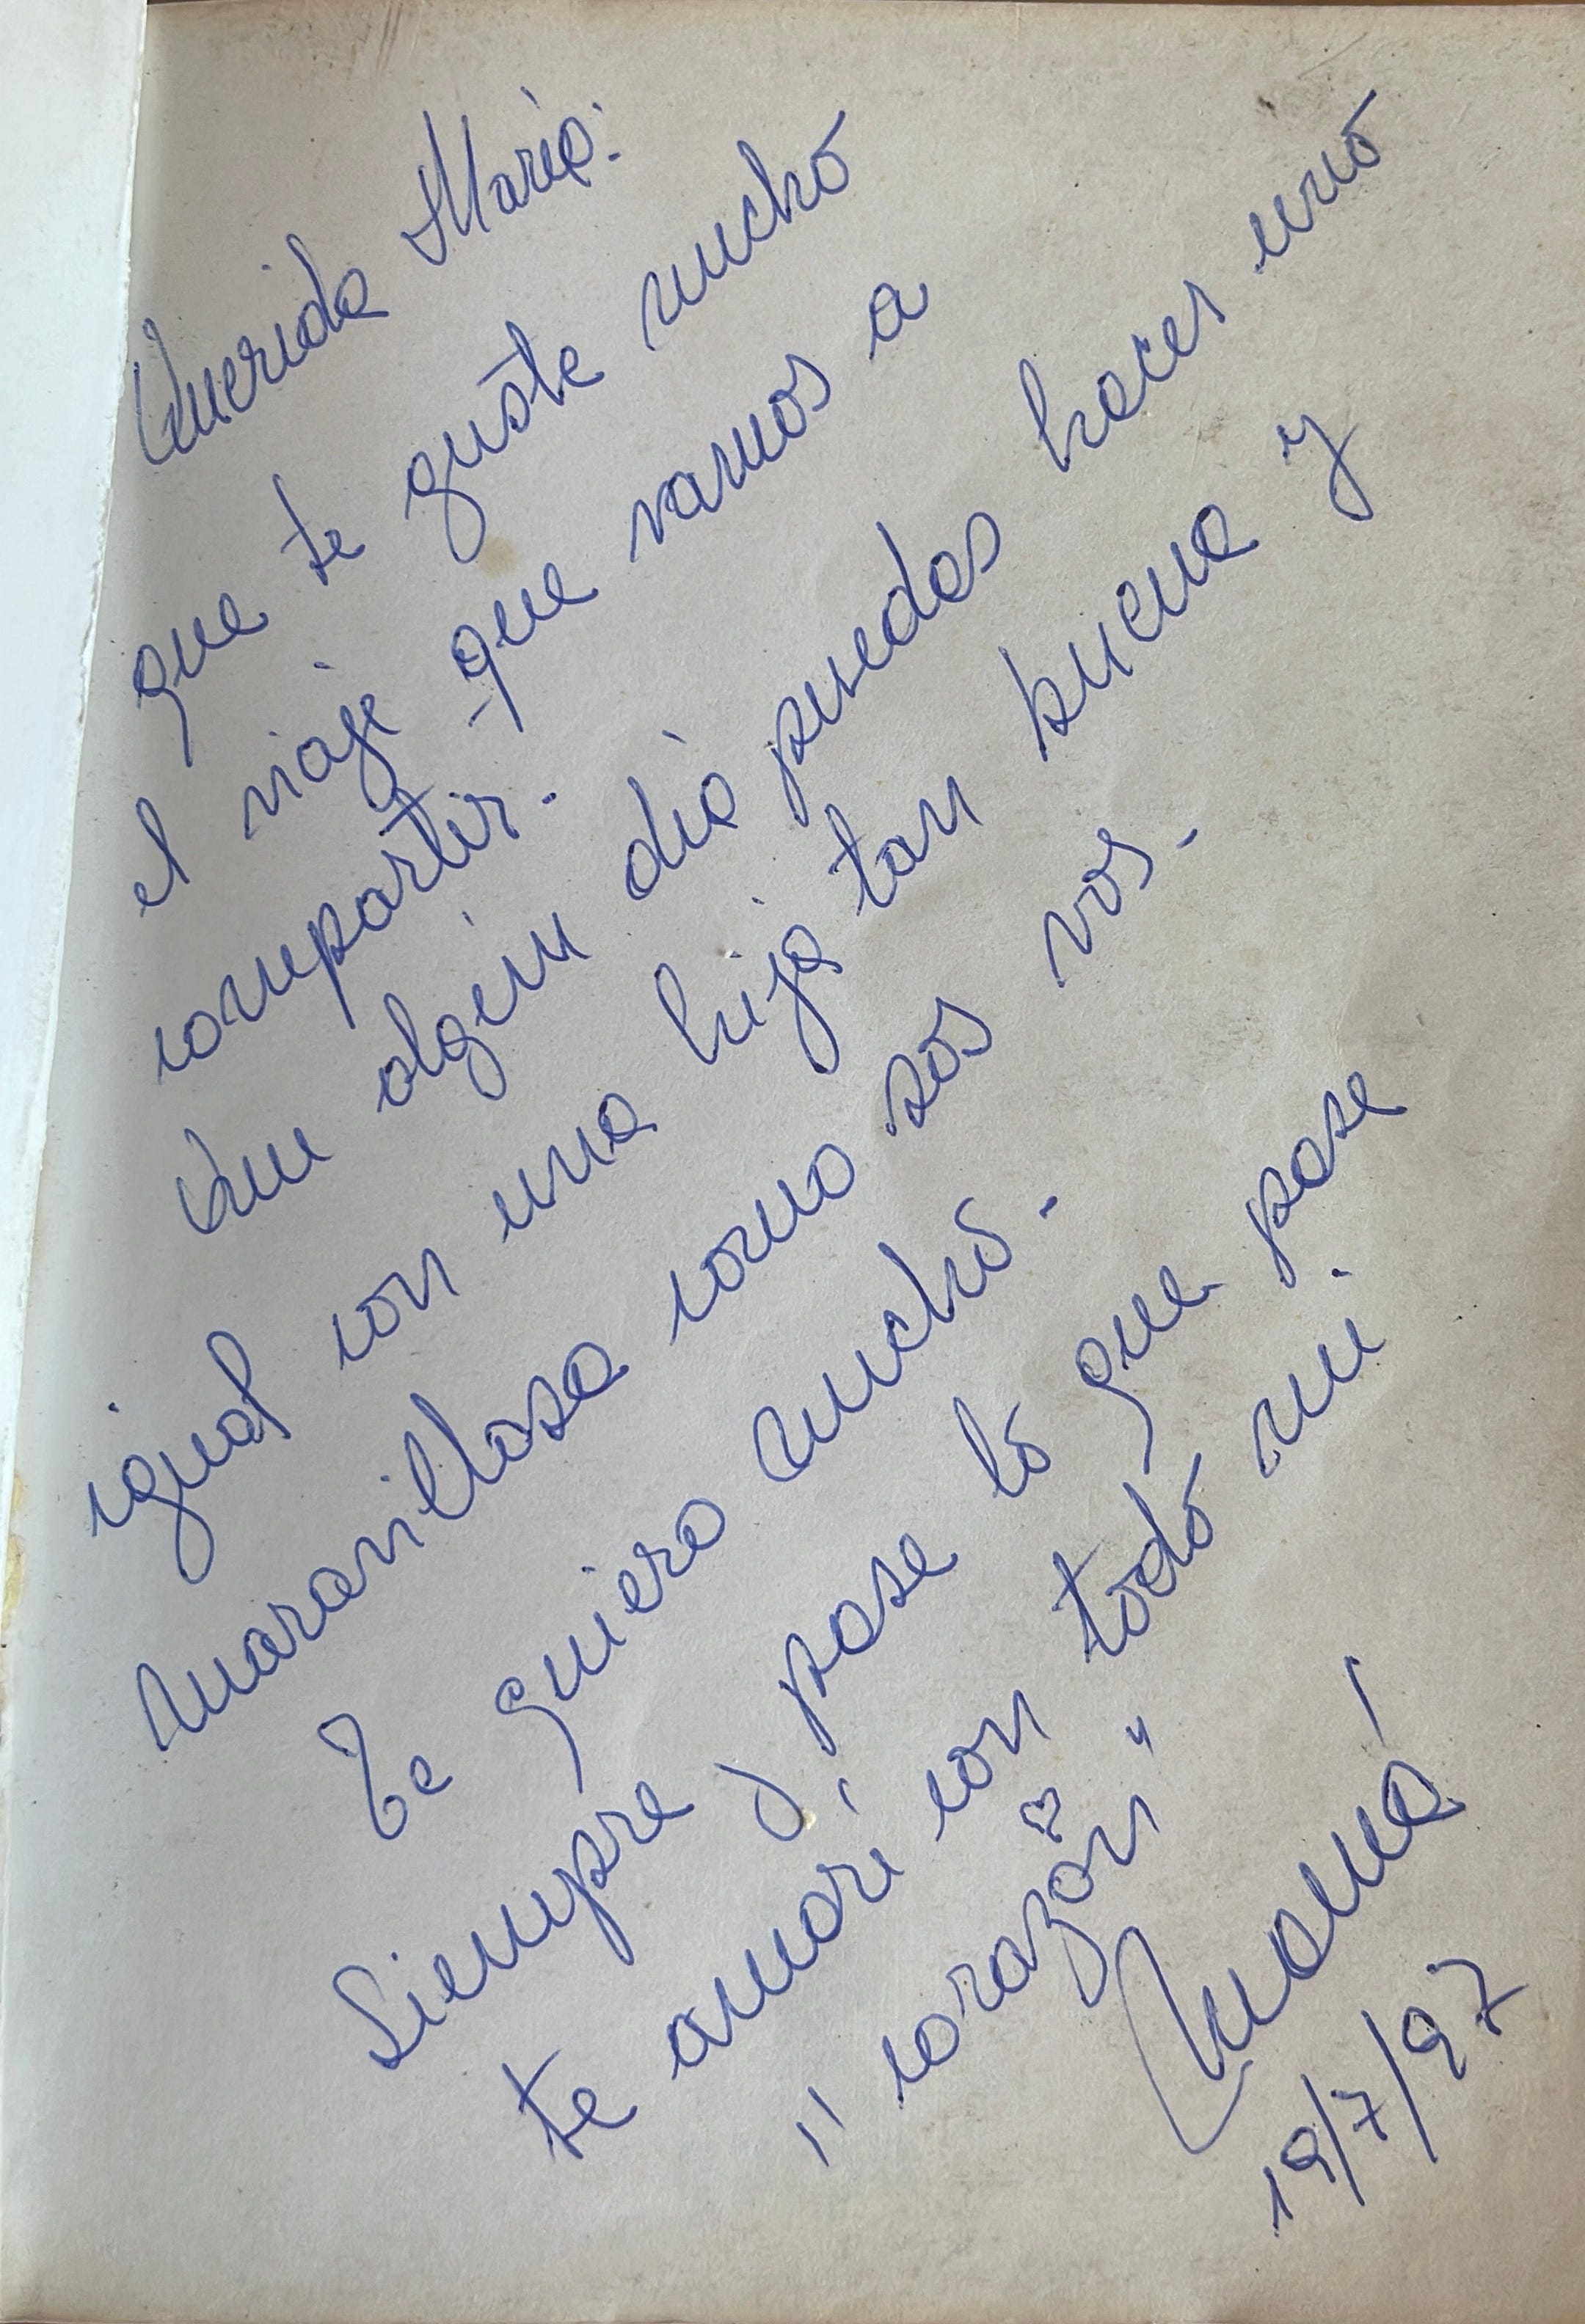 Querida María:
que te guste mucho
el viaje que vamos a
compartir.
Que algún día puedas hacer uno
igual con una hija tan buena y
maravillosa como sos vos.
Te quiero mucho.
Siempre y pase lo que pase
te amaré con todo mi
"corazón"
Mamá
19/7/97